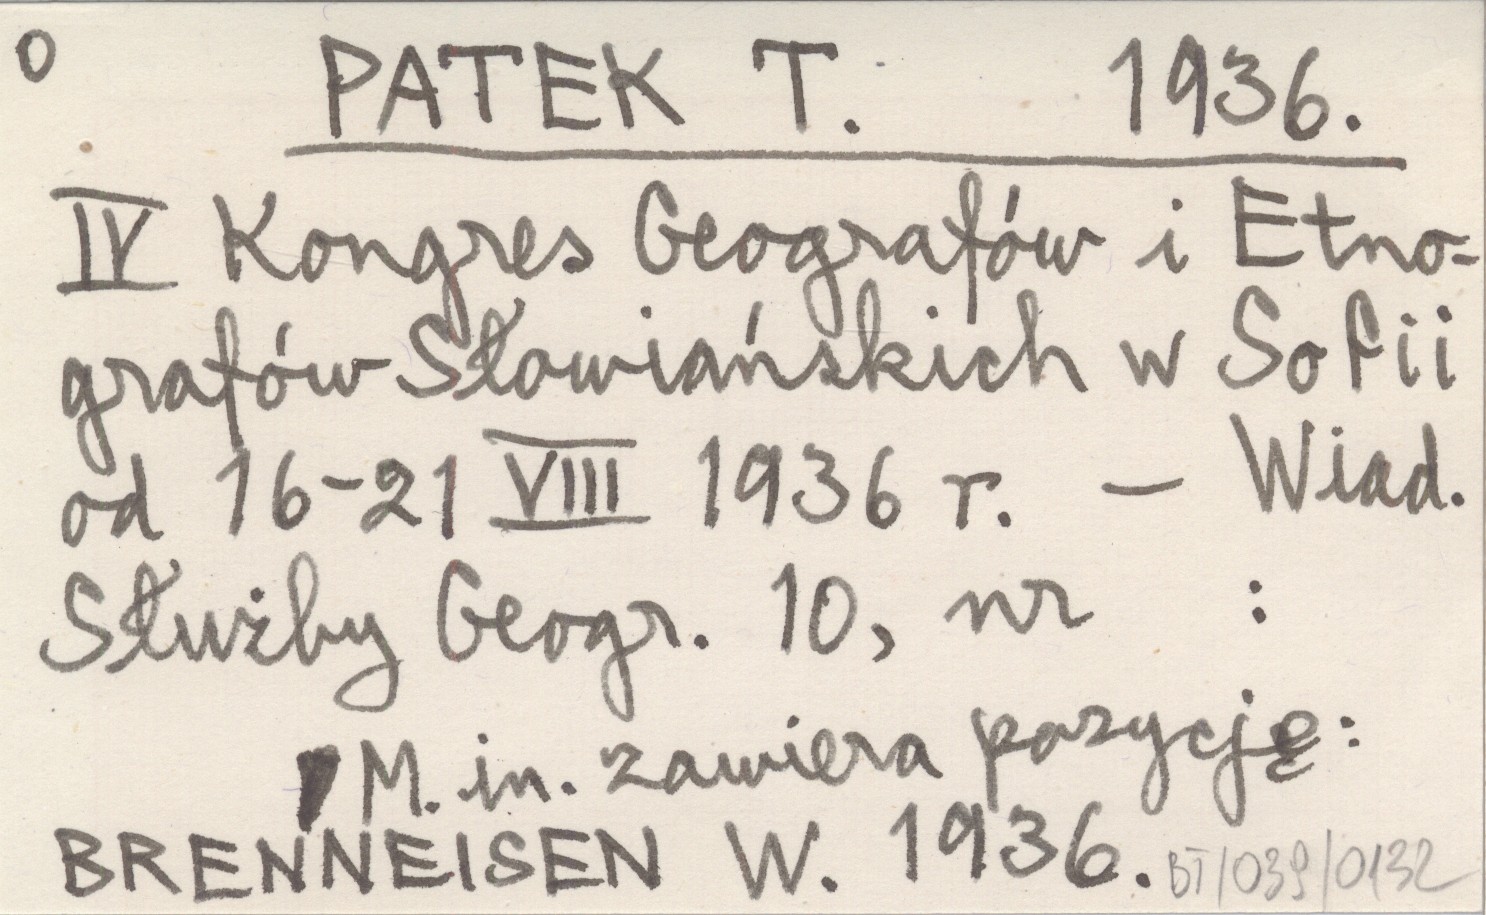 O PATEK T. 1936.
IV Kongres Geografów i Etno-
grafów Słowiańskich w Sofii
od 16-21 VIII 1936 r. — Wiad.
Służby Geogr. 10, nr :
M. in. zawiera pozycję:
BRENNEISEN W. 1936.
BT/039/0132